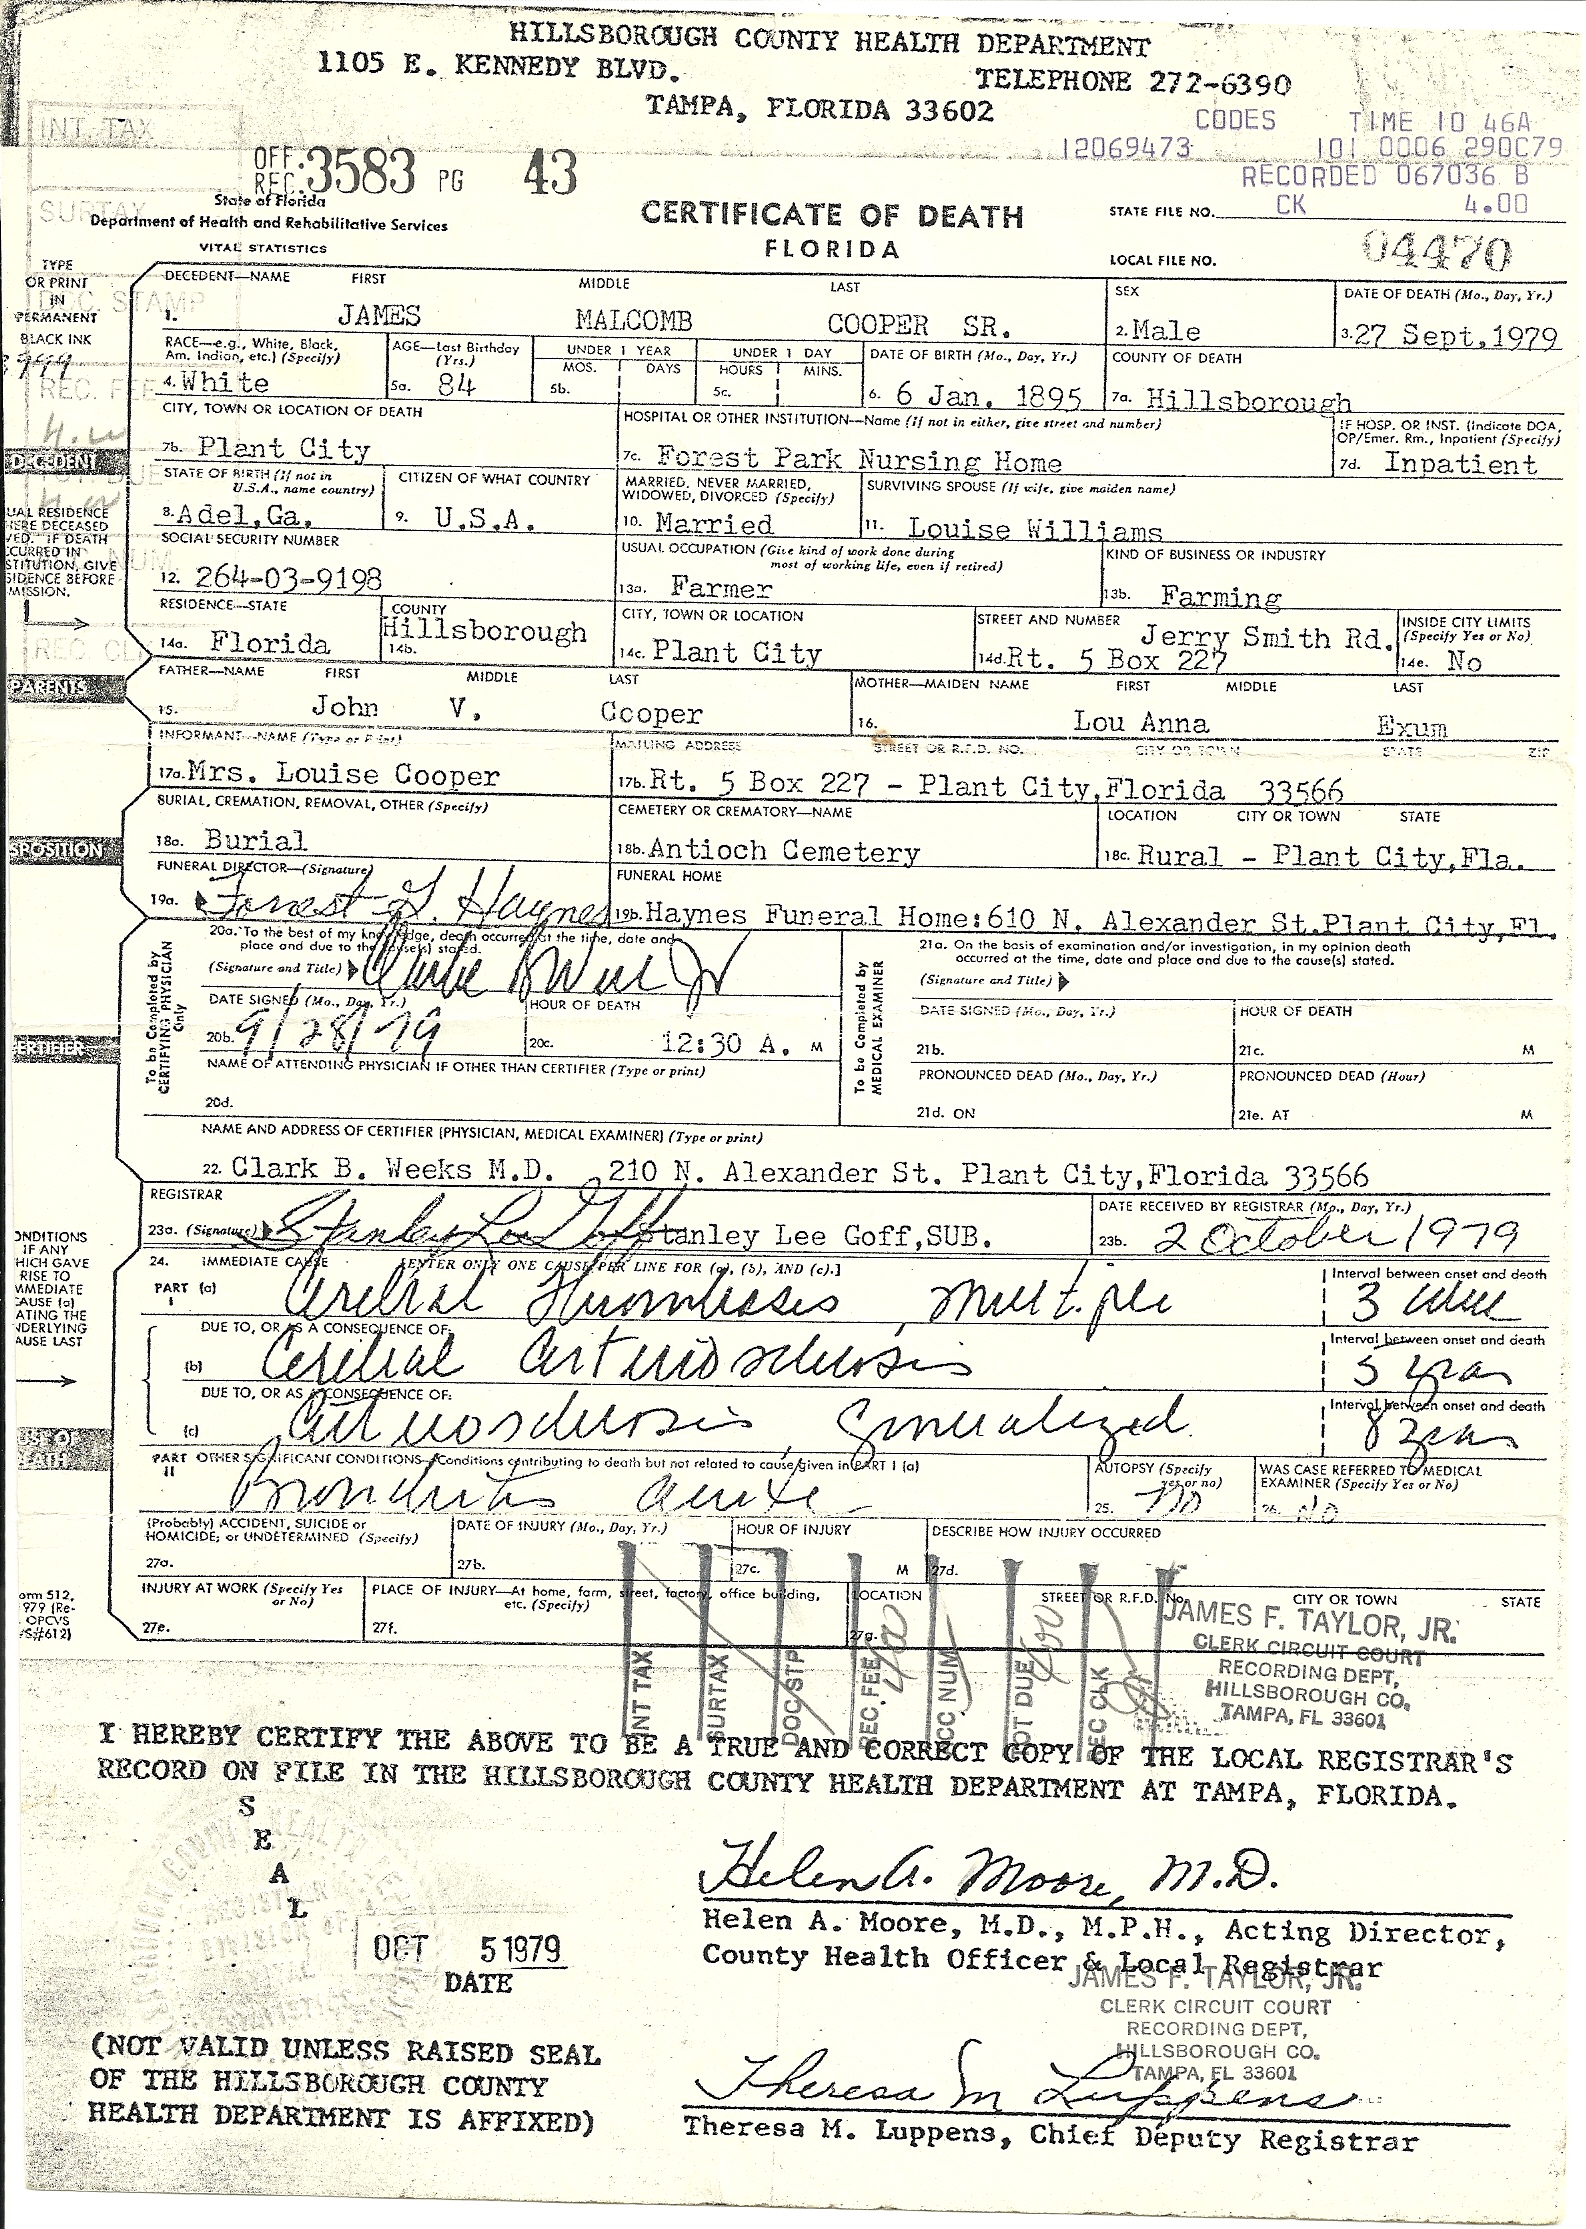 HILLSBOROUGH COUNTY HEALTH DEPARTMENT
1105 E. KENNEDY BLVD. TELEPHONE 272-6390
TAMPA, FLORIDA 33602
CODES TIME 10 46A
12069473 101 0006 290C79
RECORDED 067036 B
CK 4.00
INT. TAX
SURTAX
OFF. REC. 3583 PG 43
State of Florida
Department of Health and Rehabilitative Services
VITAL STATISTICS
CERTIFICATE OF DEATH
FLORIDA
STATE FILE NO.
LOCAL FILE NO. 04470
TYPE
OR PRINT
IN
PERMANENT
BLACK INK
DECEDENT—NAME FIRST MIDDLE LAST
1. JAMES MALCOMB COOPER SR.
SEX
2. Male
DATE OF DEATH (Mo., Day, Yr.)
3. 27 Sept, 1979
RACE—e.g., White, Black, Am. Indian, etc.) (Specify)
4. White
AGE—Last Birthday (Yrs.)
5a. 84
UNDER 1 YEAR
MOS. DAYS
5b.
UNDER 1 DAY
HOURS MINS.
5c.
DATE OF BIRTH (Mo., Day, Yr.)
6. 6 Jan. 1895
COUNTY OF DEATH
7a. Hillsborough
CITY, TOWN OR LOCATION OF DEATH
7b. Plant City
HOSPITAL OR OTHER INSTITUTION—Name (If not in either, give street and number)
7c. Forest Park Nursing Home
IF HOSP. OR INST. (Indicate DOA, OP/Emer. Rm., Inpatient (Specify)
7d. Inpatient
DECEDENT
STATE OF BIRTH (If not in U.S.A., name country)
8. Adel, Ga.
CITIZEN OF WHAT COUNTRY
9. U.S.A.
MARRIED, NEVER MARRIED, WIDOWED, DIVORCED (Specify)
10. Married
SURVIVING SPOUSE (If wife, give maiden name)
11. Louise Williams
UAL RESIDENCE
HERE DECEASED
VED. IF DEATH
CURRED IN
STITUTION, GIVE
SIDENCE BEFORE
MISSION.
SOCIAL SECURITY NUMBER
12. 264-03-9198
USUAL OCCUPATION (Give kind of work done during most of working life, even if retired)
13a. Farmer
KIND OF BUSINESS OR INDUSTRY
13b. Farming
RESIDENCE—STATE
14a. Florida
COUNTY
14b. Hillsborough
CITY, TOWN OR LOCATION
14c. Plant City
STREET AND NUMBER
14d. Jerry Smith Rd. Rt. 5 Box 227
INSIDE CITY LIMITS (Specify Yes or No)
14e. No
PARENTS
FATHER—NAME FIRST MIDDLE LAST
15. John V. Cooper
MOTHER—MAIDEN NAME FIRST MIDDLE LAST
16. Lou Anna Exum
INFORMANT—NAME (Type or Print)
17a. Mrs. Louise Cooper
MAILING ADDRESS STREET OR R.F.D. NO. CITY OR TOWN STATE ZIP
17b. Rt. 5 Box 227 - Plant City, Florida 33566
SPOSITION
BURIAL, CREMATION, REMOVAL, OTHER (Specify)
18a. Burial
CEMETERY OR CREMATORY—NAME
18b. Antioch Cemetery
LOCATION CITY OR TOWN STATE
18c. Rural - Plant City, Fla.
FUNERAL DIRECTOR—(Signature)
19a. Forrest G. Haynes
FUNERAL HOME
19b. Haynes Funeral Home:610 N. Alexander St. Plant City, Fl.
ERTIFIER
To be Completed by CERTIFYING PHYSICIAN Only
20a. To the best of my knowledge, death occurred at the time, date and place and due to the cause(s) stated.
(Signature and Title)
DATE SIGNED (Mo., Day, Yr.)
20b. 9/28/79
HOUR OF DEATH
20c. 12:30 A. M
NAME OF ATTENDING PHYSICIAN IF OTHER THAN CERTIFIER (Type or print)
20d.
To be Completed by MEDICAL EXAMINER
21a. On the basis of examination and/or investigation, in my opinion death occurred at the time, date and place and due to the cause(s) stated.
(Signature and Title)
DATE SIGNED (Mo., Day, Yr.)
21b.
HOUR OF DEATH
21c. M
PRONOUNCED DEAD (Mo., Day, Yr.)
21d. ON
PRONOUNCED DEAD (Hour)
21e. AT M
NAME AND ADDRESS OF CERTIFIER (PHYSICIAN, MEDICAL EXAMINER) (Type or print)
22. Clark B. Weeks M.D. 210 N. Alexander St. Plant City, Florida 33566
REGISTRAR
23a. (Signature) Stanley Lee Goff Stanley Lee Goff, SUB.
DATE RECEIVED BY REGISTRAR (Mo., Day, Yr.)
23b. 2 October 1979
ONDITIONS
IF ANY
HICH GAVE
RISE TO
MMEDIATE
CAUSE (a)
ATING THE
NDERLYING
AUSE LAST
24. IMMEDIATE CAUSE [ENTER ONLY ONE CAUSE PER LINE FOR (a), (b), AND (c).]
PART I (a) Cerebral Thrombosis, multiple
Interval between onset and death
3
DUE TO, OR AS A CONSEQUENCE OF:
(b) Cerebral arteriosclerosis
Interval between onset and death
5 years
DUE TO, OR AS A CONSEQUENCE OF:
(c) Arteriosclerosis, generalized
Interval between onset and death
8 years
PART II OTHER SIGNIFICANT CONDITIONS—Conditions contributing to death but not related to cause given in PART I (a)
Bronchitis acute
AUTOPSY (Specify yes or no)
25. no
WAS CASE REFERRED TO MEDICAL EXAMINER (Specify Yes or No)
26. No
(Probably) ACCIDENT, SUICIDE or HOMICIDE; or UNDETERMINED (Specify)
27a.
DATE OF INJURY (Mo., Day, Yr.)
27b.
HOUR OF INJURY
27c. M
DESCRIBE HOW INJURY OCCURRED
27d.
INJURY AT WORK (Specify Yes or No)
27e.
PLACE OF INJURY—At home, farm, street, factory, office building, etc. (Specify)
27f.
LOCATION STREET OR R.F.D. No. CITY OR TOWN STATE
27g.
INT TAX
SURTAX
DOC STP
REC. FEE
REC CLK
JAMES F. TAYLOR, JR.
CLERK CIRCUIT COURT
RECORDING DEPT,
HILLSBOROUGH CO.
TAMPA, FL 33601
I HEREBY CERTIFY THE ABOVE TO BE A TRUE AND CORRECT COPY OF THE LOCAL REGISTRAR'S
RECORD ON FILE IN THE HILLSBOROUGH COUNTY HEALTH DEPARTMENT AT TAMPA, FLORIDA.
S
E
A
L
OCT 5 1979
DATE
Helen A. Moore, M.D.
Helen A. Moore, M.D., M.P.H., Acting Director,
County Health Officer & Local Registrar
JAMES F. TAYLOR, JR.
CLERK CIRCUIT COURT
RECORDING DEPT,
HILLSBOROUGH CO.
TAMPA, FL 33601
(NOT VALID UNLESS RAISED SEAL
OF THE HILLSBOROUGH COUNTY
HEALTH DEPARTMENT IS AFFIXED)
Theresa M Luppens
Theresa M. Luppens, Chief Deputy Registrar